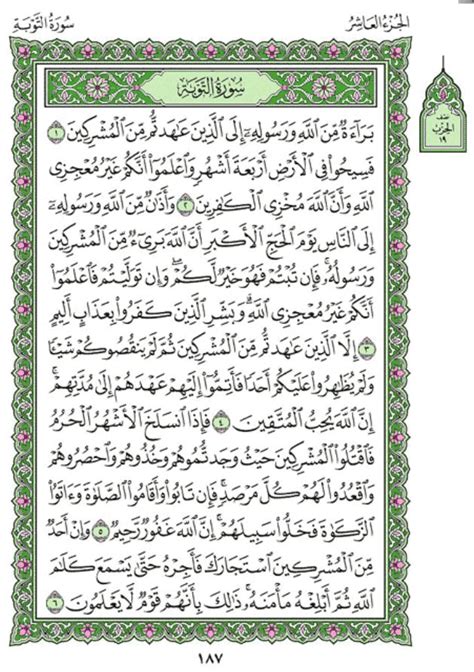 الجُزْءُ العَاشِرُ
سُورَةُ التَّوْبَةِ
سُورَةُ التَّوْبَةِ
نصف
الحزب
١٩
بَرَآءَةٌ مِّنَ ٱللَّهِ وَرَسُولِهِۦٓ إِلَى ٱلَّذِينَ عَٰهَدتُّم مِّنَ ٱلْمُشْرِكِينَ ١
فَسِيحُوا۟ فِى ٱلْأَرْضِ أَرْبَعَةَ أَشْهُرٍ وَٱعْلَمُوٓا۟ أَنَّكُمْ غَيْرُ مُعْجِزِى
ٱللَّهِ وَأَنَّ ٱللَّهَ مُخْزِى ٱلْكَٰفِرِينَ ٢ وَأَذَٰنٌ مِّنَ ٱللَّهِ وَرَسُولِهِۦٓ
إِلَى ٱلنَّاسِ يَوْمَ ٱلْحَجِّ ٱلْأَكْبَرِ أَنَّ ٱللَّهَ بَرِىٓءٌ مِّنَ ٱلْمُشْرِكِينَ
وَرَسُولُهُۥ فَإِن تُبْتُمْ فَهُوَ خَيْرٌ لَّكُمْ وَإِن تَوَلَّيْتُمْ فَٱعْلَمُوٓا۟
أَنَّكُمْ غَيْرُ مُعْجِزِى ٱللَّهِ وَبَشِّرِ ٱلَّذِينَ كَفَرُوا۟ بِعَذَابٍ أَلِيمٍ
٣ إِلَّا ٱلَّذِينَ عَٰهَدتُّم مِّنَ ٱلْمُشْرِكِينَ ثُمَّ لَمْ يَنقُصُوكُمْ شَيْـًٔا
وَلَمْ يُظَٰهِرُوا۟ عَلَيْكُمْ أَحَدًا فَأَتِمُّوٓا۟ إِلَيْهِمْ عَهْدَهُمْ إِلَىٰ مُدَّتِهِمْ
إِنَّ ٱللَّهَ يُحِبُّ ٱلْمُتَّقِينَ ٤ فَإِذَا ٱنسَلَخَ ٱلْأَشْهُرُ ٱلْحُرُمُ
فَٱقْتُلُوا۟ ٱلْمُشْرِكِينَ حَيْثُ وَجَدتُّمُوهُمْ وَخُذُوهُمْ وَٱحْصُرُوهُمْ
وَٱقْعُدُوا۟ لَهُمْ كُلَّ مَرْصَدٍ فَإِن تَابُوا۟ وَأَقَامُوا۟ ٱلصَّلَوٰةَ وَءَاتَوُا۟
ٱلزَّكَوٰةَ فَخَلُّوا۟ سَبِيلَهُمْ إِنَّ ٱللَّهَ غَفُورٌ رَّحِيمٌ ٥ وَإِنْ أَحَدٌ
مِّنَ ٱلْمُشْرِكِينَ ٱسْتَجَارَكَ فَأَجِرْهُ حَتَّىٰ يَسْمَعَ كَلَٰمَ
ٱللَّهِ ثُمَّ أَبْلِغْهُ مَأْمَنَهُۥ ذَٰلِكَ بِأَنَّهُمْ قَوْمٌ لَّا يَعْلَمُونَ ٦
١٨٧